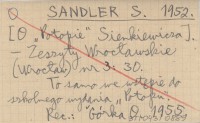 SANDLER S. 1952.
[O „Potopie” Sienkiewicza].
– Zeszyty Wrocławskie
(Wrocław) nr 3: 30.
To samo we wstępie do
szkolnego wydania „Potopu”.
Rec.: Górka O. 1955.